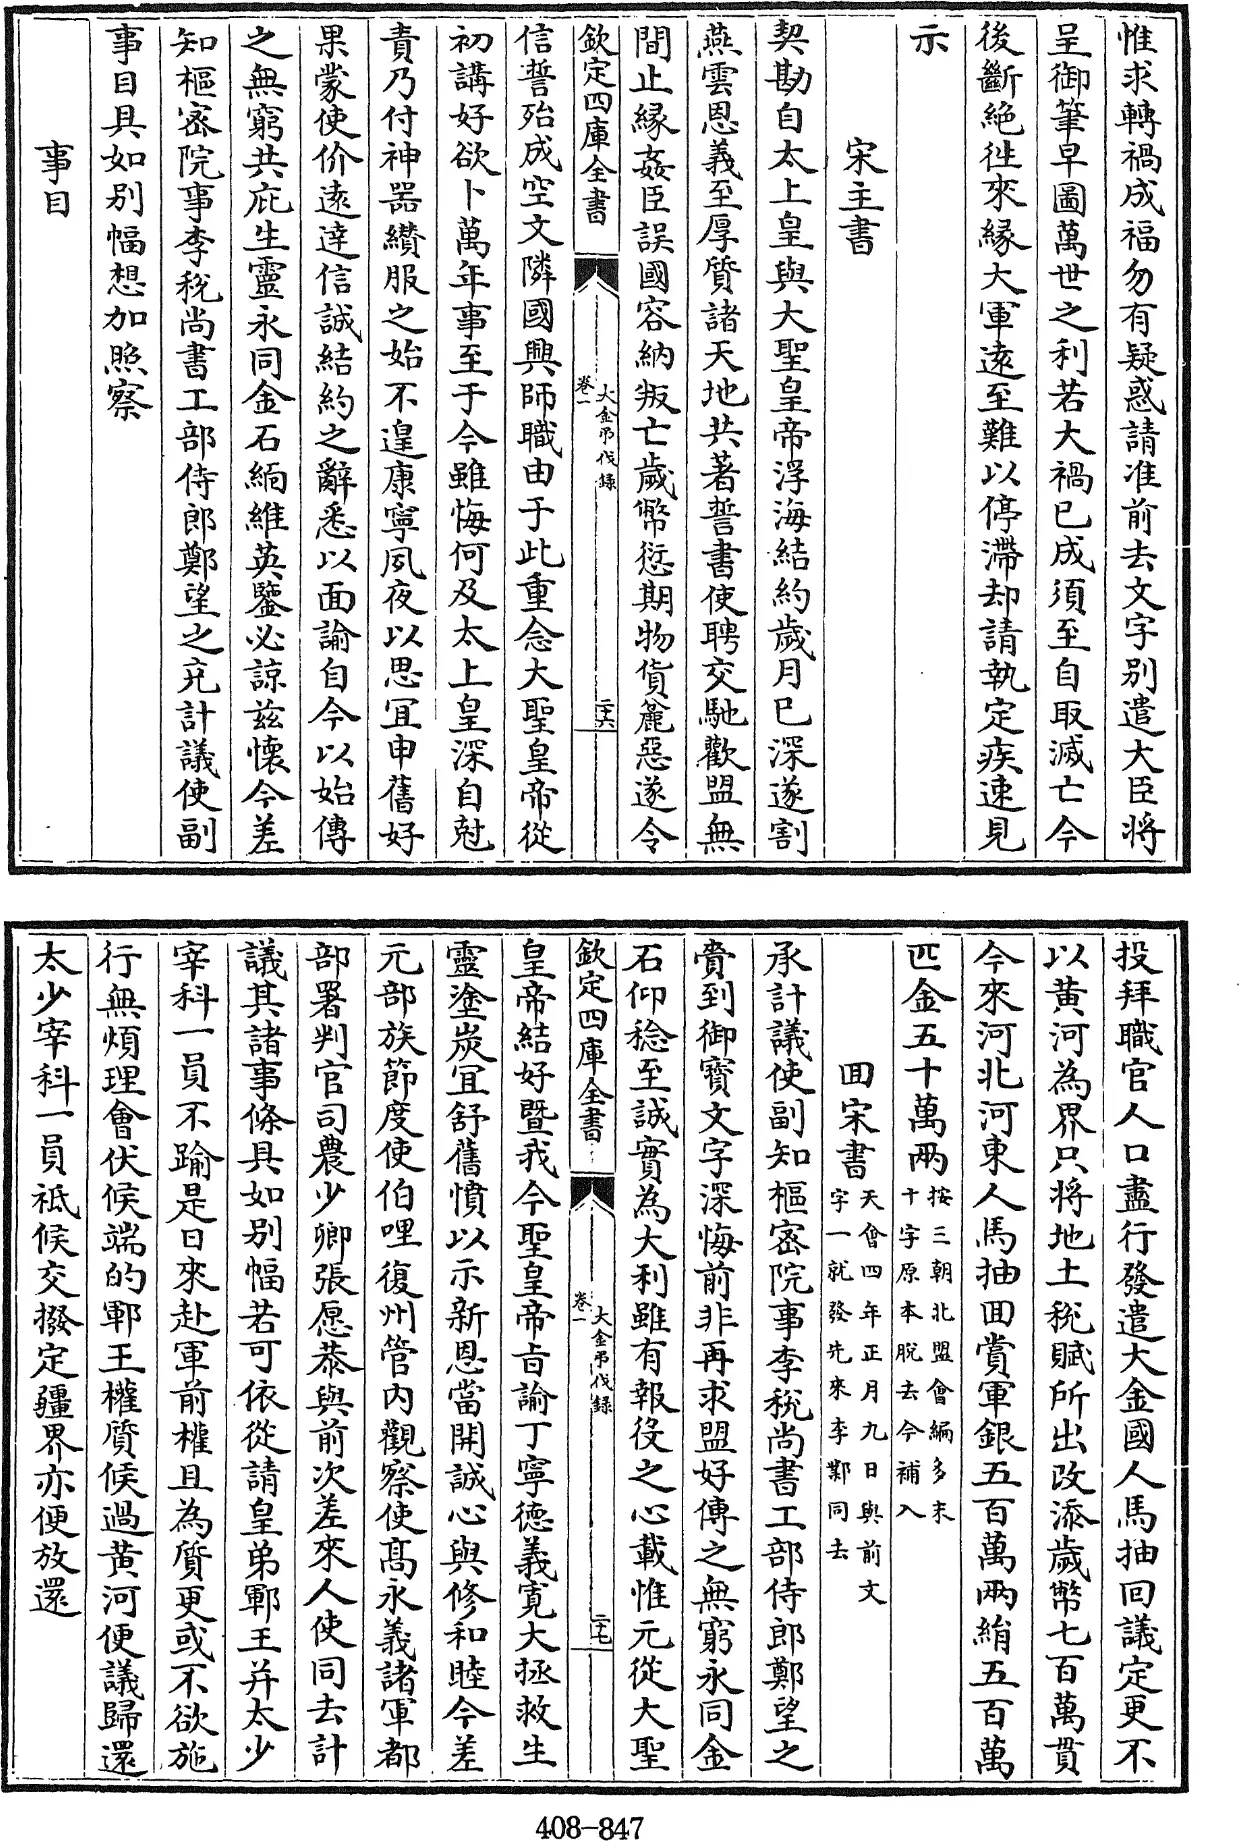 惟求轉禍成福勿有疑惑請准前去文字别遣大臣將
呈御筆早圖萬世之利若大禍已成須至自取滅亡今
後斷絶徃來縁大軍遠至難以停滯却請執定疾速見
示
宋主書
契勘自太上皇與大聖皇帝浮海結約歲月已深遂割
燕雲恩義至厚質諸天地共著誓書使聘交馳歡盟無
間止縁姦臣誤國容納叛亡歲幣愆期物貨麄惡遂令
欽定四庫全書
大金弔伐録
卷一
二十六
信誓殆成空文隣國興師職由于此重念大聖皇帝從
初講好欲卜萬年事至于今雖悔何及太上皇深自尅
責乃付神器纘服之始不遑康寧夙夜以思冝申舊好
果蒙使价逺逹信誠結約之辭悉以面諭自今以始傳
之無窮共庇生靈永同金石緬維英鑒必諒兹懷今差
知樞宻院事李梲尚書工部侍郎鄭望之充計議使副
事目具如别幅想加照察
事目
投拜職官人口盡行發遣大金國人馬抽回議定更不
以黄河為界只將地土稅賦所出改添歲幣七百萬貫
今來河北河東人馬抽回賞軍銀五百萬兩絹五百萬
匹金五十萬兩按三朝北盟會編多末
十字原本脱去今補入
回宋書天會四年正月九日與前文
字一就發先來李鄴同去
承計議使副知樞宻院事李梲尚書工部侍郎鄭望之
賫到御寳文字深悔前非再求盟好傳之無窮永同金
石仰稔至誠實為大利雖有報役之心載惟元從大聖
欽定四庫全書
大金弔伐録
卷一
二十七
皇帝結好暨我今聖皇帝㫖諭丁寧德義寛大拯救生
靈塗炭冝舒舊憤以示新恩當開誠心與修和睦今差
元部族節度使伯哩復州管内觀察使髙永義諸軍都
部署判官司農少卿張愿恭與前次差來人使同去計
議其諸事條具如别幅若可依從請皇弟鄆王并太少
宰科一員不踰是日來赴軍前權且為質更或不欲施
行無煩理會伏候端的鄆王權質候過黄河便議歸還
太少宰科一員祗候交撥定疆界亦便放還
408-847